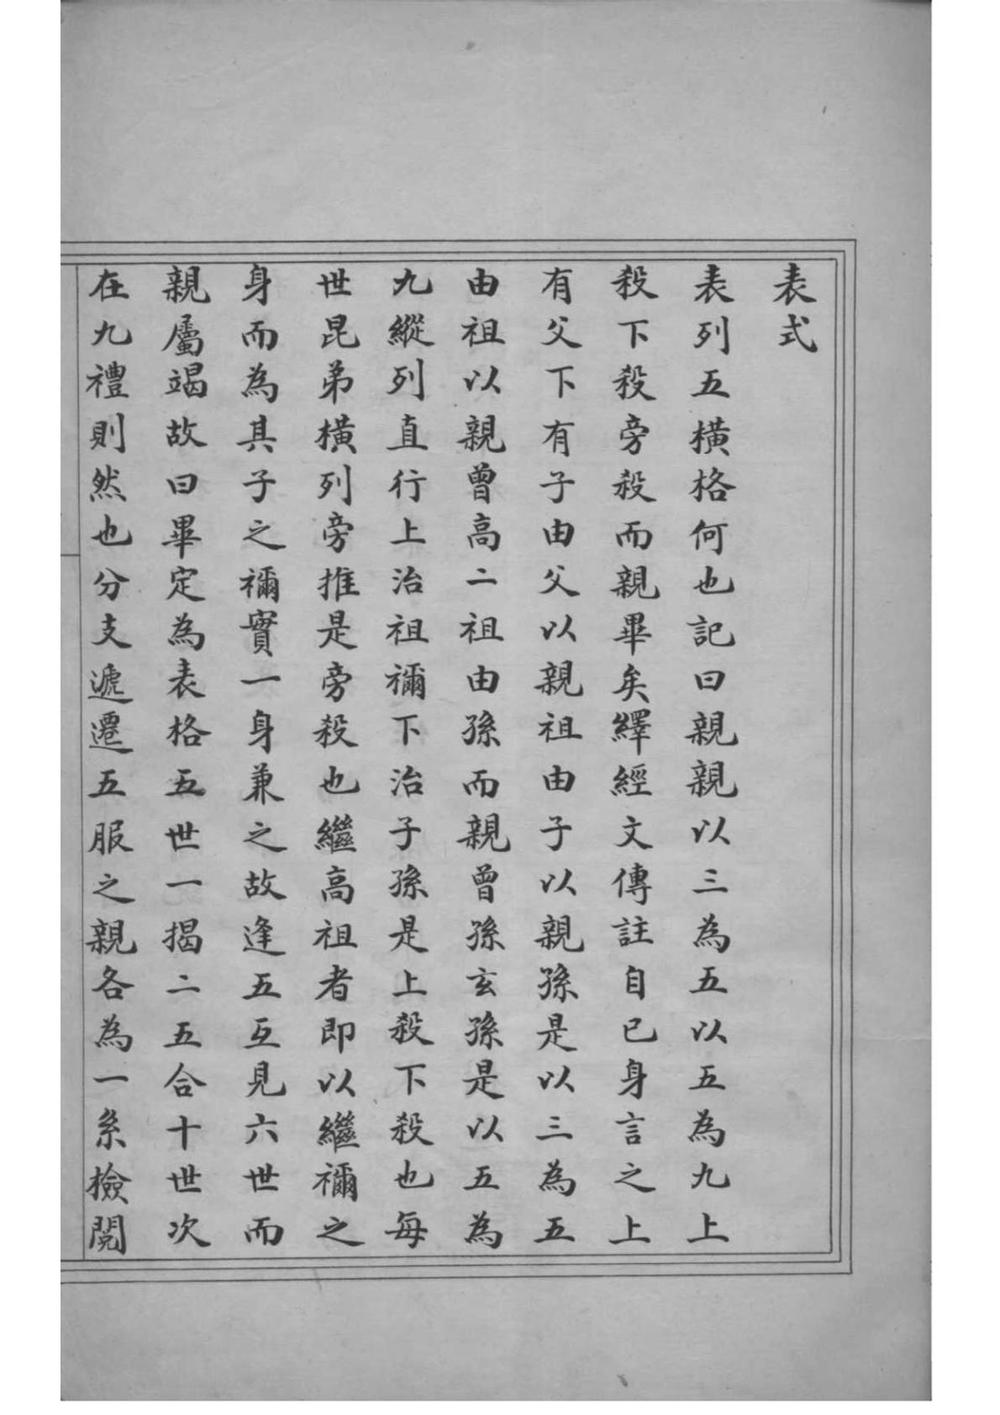 表式
表列五橫格何也記曰親親以三為五以五為九上
殺下殺旁殺而親畢矣繹經文傳註自已身言之上
有父下有子由父以親祖由子以親孫是以三為五
由祖以親曾高二祖由孫而親曾孫玄孫是以五為
九縱列直行上治祖禰下治子孫是上殺下殺也每
世昆弟橫列旁推是旁殺也繼高祖者即以繼禰之
身而為其子之禰實一身兼之故逢五互見六世而
親屬竭故曰畢定為表格五世一揭二五合十世次
在九禮則然也分支遞遷五服之親各為一系檢閱